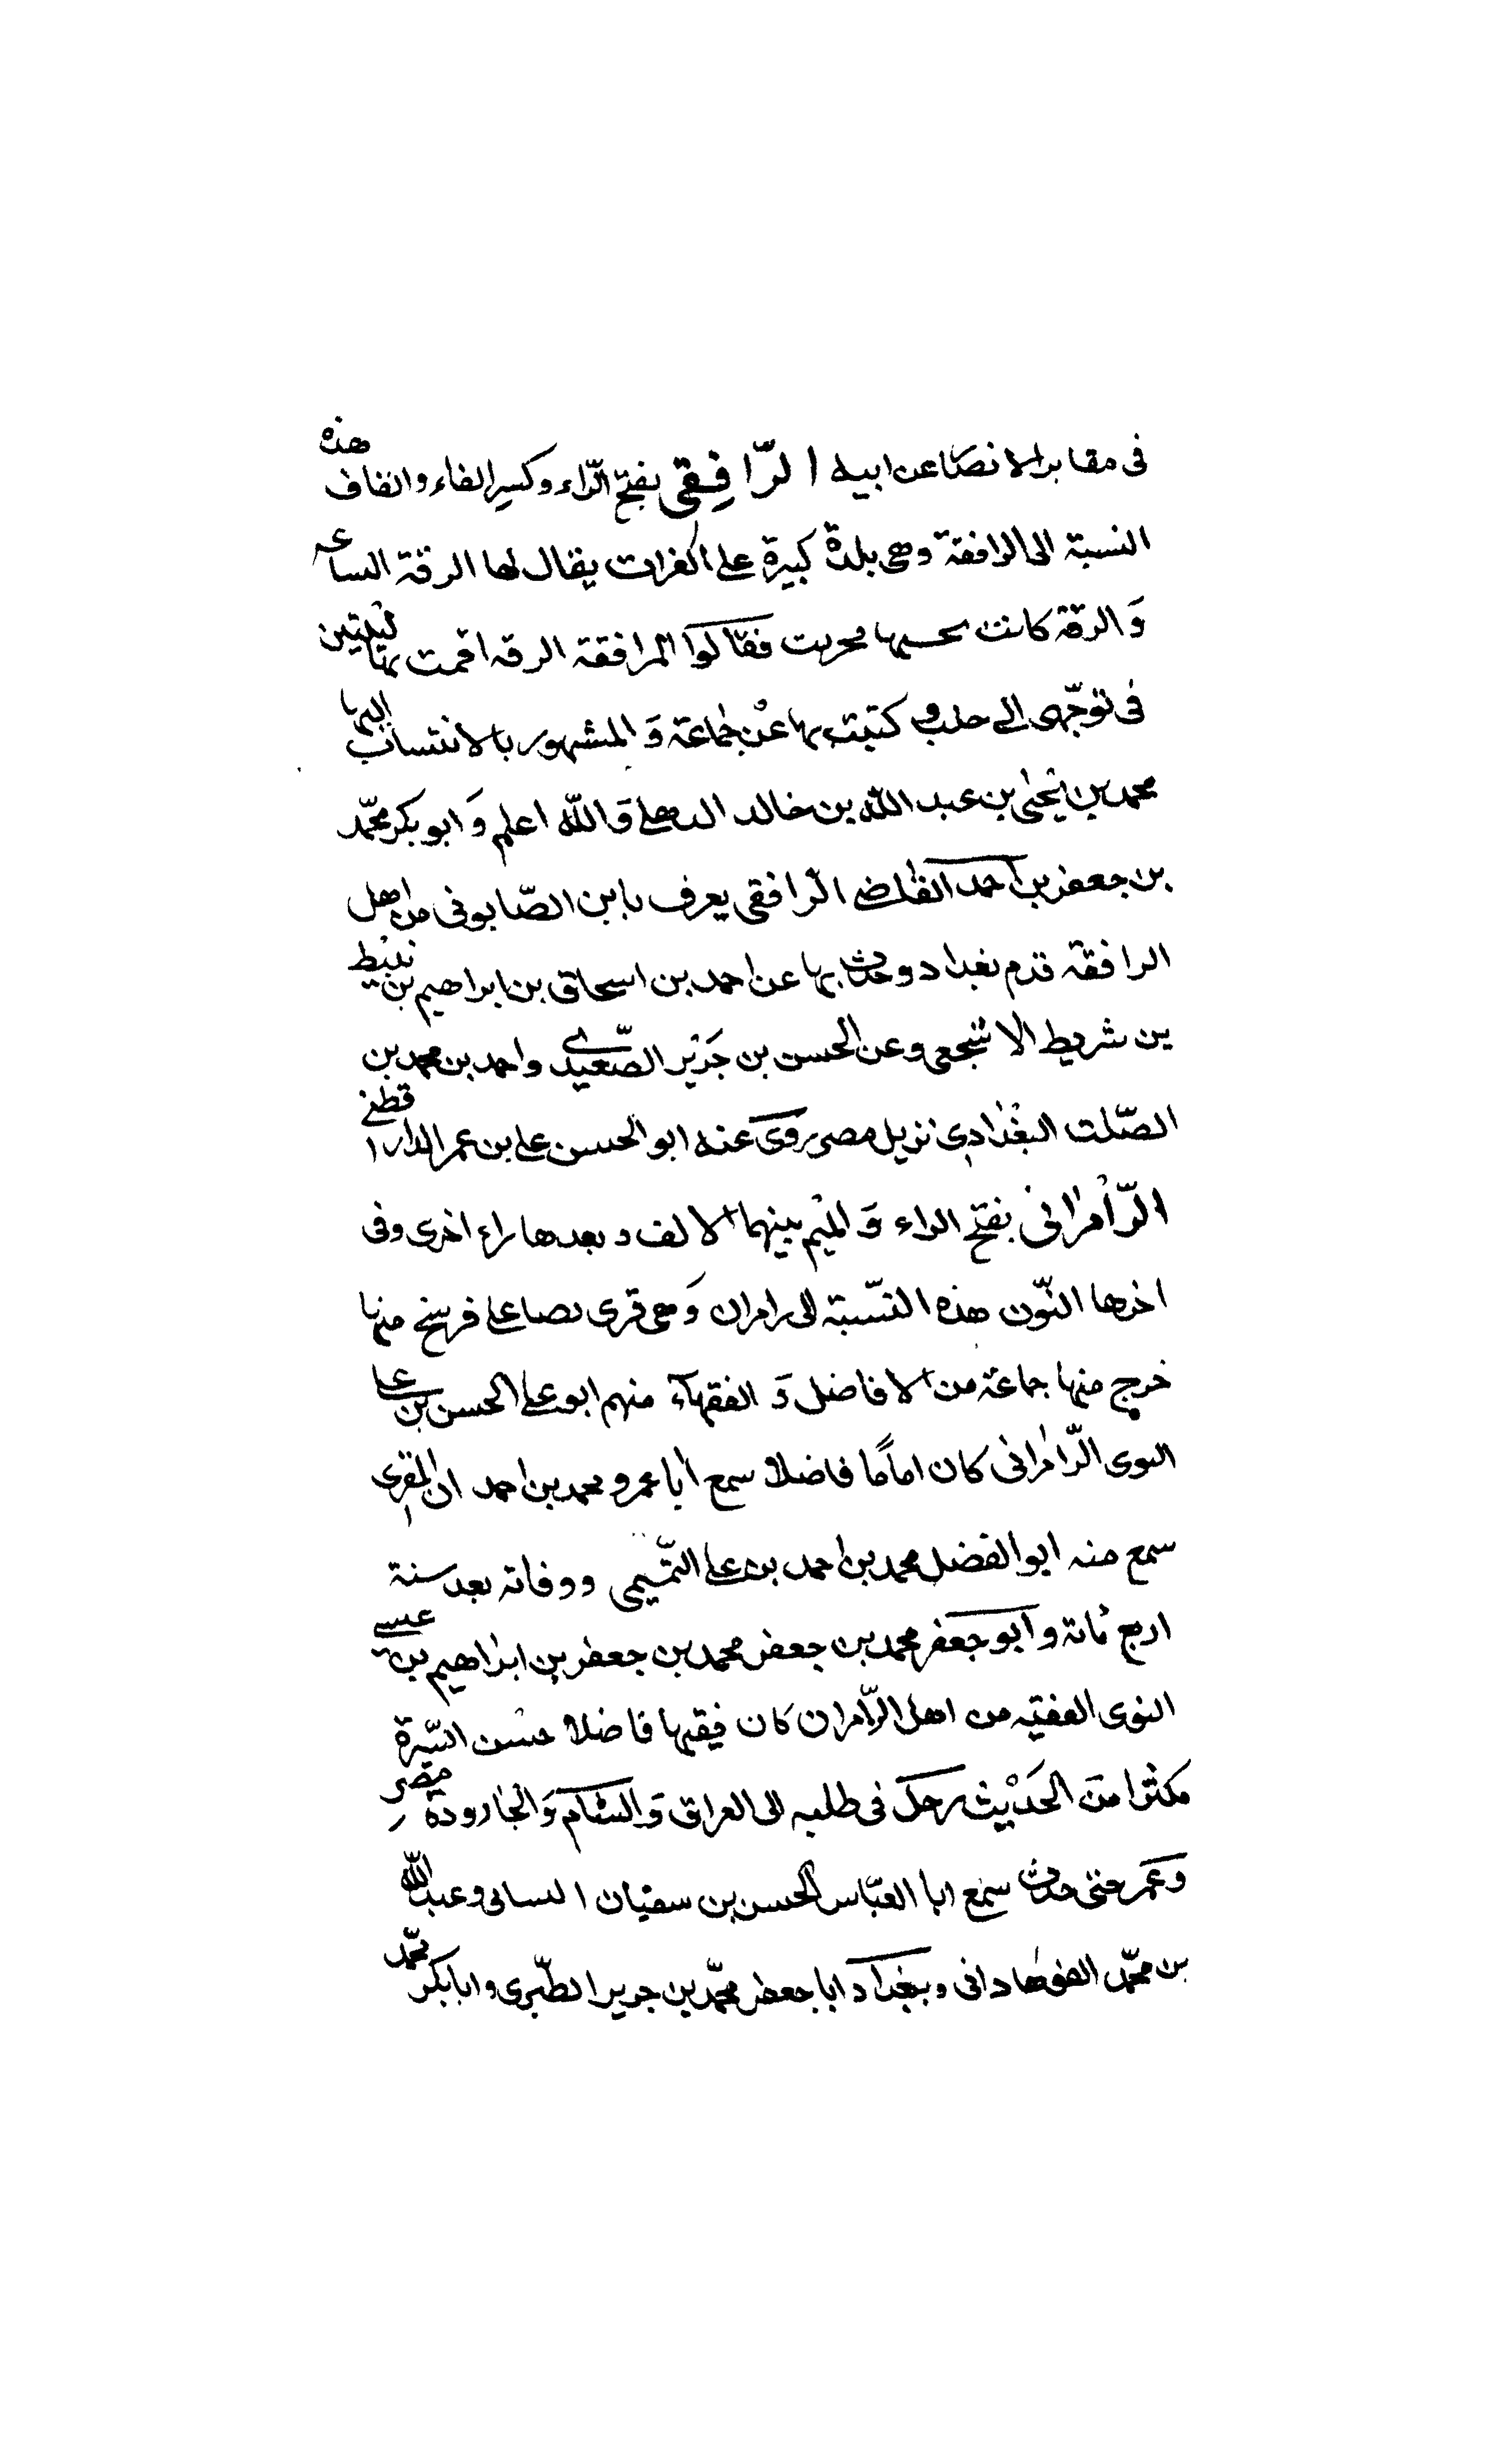 فى مقابر الانصا عن ابيه الرّافِقى بفتح الرّاء وكسر الفاء والقاف هذه
النسبة الى الرافقة وهى بلدة كبيرة على الفرات يقال لها الرقة الساعه
وَالرقة كانت بحسبها فخربت فقالوا الرافقة الرقه اقمت بها ليلتين
فى توجّهى الى حلب و كتبت بها عنْ جماعة وَ المشهور بالانتساب اليها
محمد بن يحيى بن عبد الله بن خالد الدهلى وَالله اعلم وَ ابو بكر محمّد
بن جعفر بن احمد القاضى الرّافقى يعرف بابن الصّابونى من اهل
الرافقة قدم بغداد وحدث بها عن احمد بن اسحاق بن ابراهيم بن نبيط
بن شريط الاشجعى وعن الحسن بن جَرْير الصّعيدى واحمد بن محمد بن
الصّلت البغْدادى نزيل مصر روى عنه ابو الحسن على بن عمر الدارا قطنى
الرّامرانى بفتح الراء وَ الميم بينهما الالف و بعدها راء اخرى وفى
اخرها النّون هذه النّسبة الى رامران وَهى قرى نصا على فرسخ منها
خرج منها جماعة من الافاضل وَ الفقهاء منهم ابو على الحسن بن على
النوى الرّامرانى كان اماماً فاضلا سمع ابا عمرو محمد بن احمد ان المقرى
سمع منه ابو الفضل محمد بن احمد بن على التّميمى ووفاته بعد سنة
اربع مائة و ابو جعفر محمد بن جعفر محمد بن جعفر بن ابراهيم بن عيسى
النوى الفقيه من اهل الرّامران كان فيقها فاضلا حسْن السّيرة
مكثرا منَ الحَدْيث رحل فى طلبه الى العراق وَالشام وَالجارودة مصر
وَعمر حتى حدث سمع ابا العبّاس الحسن بن سفيان النسائى و عبد الله
بن محمّد الفرهادانى و ببغداد ابا جعفر محمّد بن جرير الطبّرى و ابا بكر محمّد